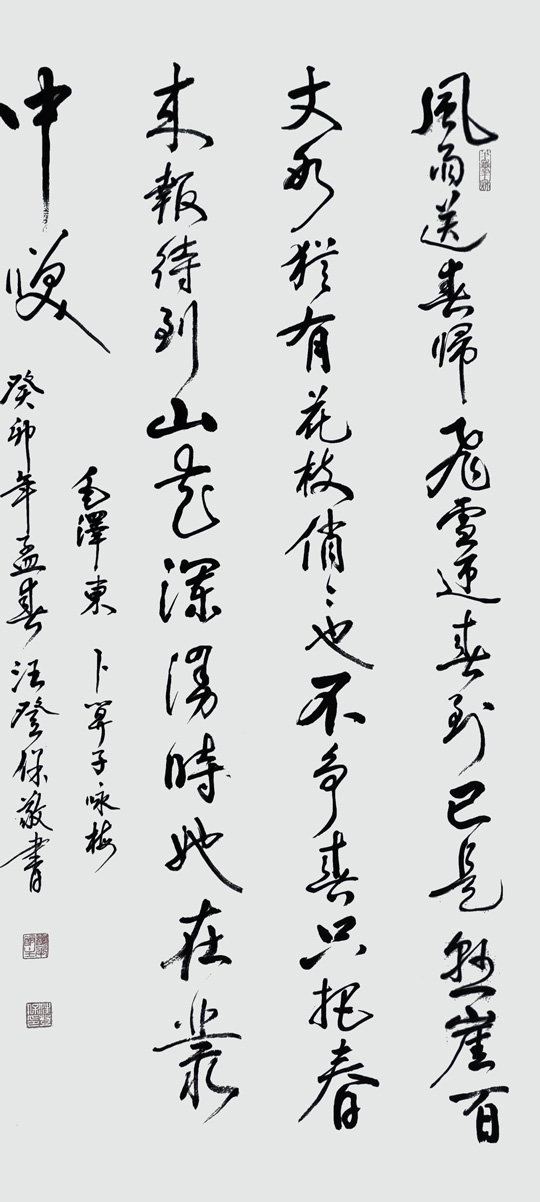 風雨送春歸飛雪迎春到已是懸崖百
丈冰猶有花枝俏〻也不争春只把春
來報待到山花爛漫時她在叢
中咲
毛澤東 卜算子咏梅
癸卯年孟春汪登保敬書